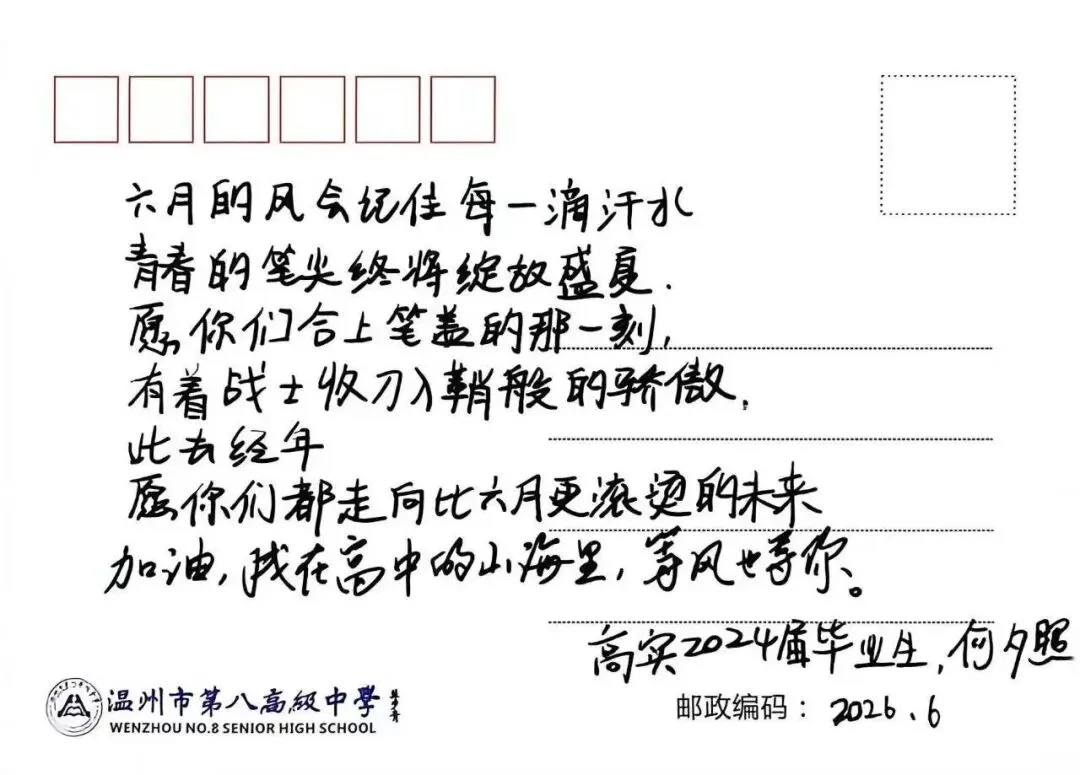 六月的风会纪住每一滴汗水
青春的笔尖终将绽放盛夏.
愿你们合上笔盖的那一刻,
有着战士收刀入鞘般的骄傲.
此去经年
愿你们都走向比六月更滚烫的未来
加油,我在高中的山海里,等风也等你。
高实2024届毕业生,何夕照
温州市第八高級中學
WENZHOU NO.8 SENIOR HIGH SCHOOL
邮政编码： 2026.6